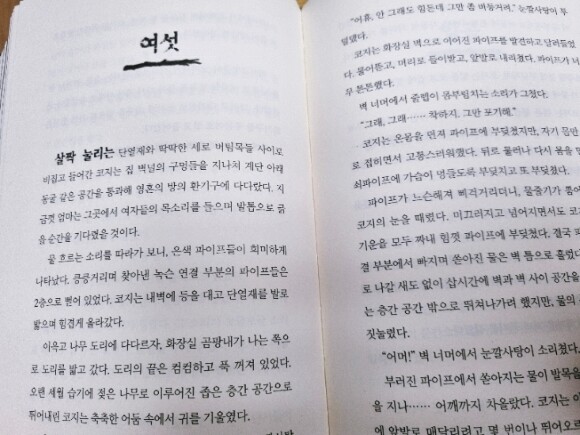 여섯
살짝 눌리는 단열재와 딱딱한 세로 버팀목들 사이로
비집고 들어간 코지는 집 벽널의 구멍들을 지나쳐 계단 아래
동굴 같은 공간을 통과해 영혼의 방의 환기구에 다다랐다. 지
금껏 엄마는 그곳에서 여자들의 목소리를 들으며 발톱으로 긁
을 순간을 기다렸을 것이다.
물 흐르는 소리를 따라가 보니, 은색 파이프들이 희미하게
나타났다. 킁킁거리며 찾아낸 녹슨 연결 부분의 파이프들은
2층으로 뻗어 있었다. 코지는 내벽에 등을 대고 단열재를 발로
밟으며 힘겹게 올라갔다.
이윽고 나무 도리에 다다르자, 화장실 곰팡내가 나는 쪽으
로 도리를 밟고 갔다. 도리의 끝은 컴컴하고 푹 꺼져 있었다.
오랜 세월 습기에 젖은 나무로 이루어진 좁은 층간 공간으로
뛰어내린 코지는 축축한 어둠 속에서 귀를 기울였다.
"어휴, 안 그래도 힘든데 그만 좀 버둥거려." 눈깔사탕이 투
덜댔다.
코지는 화장실 벽으로 이어진 파이프를 발견하고 달려들었
다. 물어뜯고, 머리로 들이받고, 앞발로 내리쳤다. 파이프가 너
무 튼튼했다.
벽 너머에서 줄렙이 몸부림치는 소리가 그쳤다.
"그래, 그래…… 착하지. 그만 포기해."
코지는 온몸을 던져 파이프에 부딪쳤지만, 자기 몸만
로 접히면서 고통스러웠다. 뒤로 물러나 다시 몸을
쇠파이프에 가슴이 멍들도록 부딪치고 또 부딪쳤다.
파이프가 느슨해져 삐걱거리더니, 물줄기가 뿜어
코지의 눈을 때렸다. 미끄러지고 넘어지면서도 코
기운을 모두 짜내 힘껏 파이프에 부딪쳤다. 결국 파
결 부분에서 빠지며 쏟아진 물은 벽 틈으로 흘렀다
로 나갈 새도 없이 삽시간에 벽과 벽 사이 공간을
는 층간 공간 밖으로 뛰쳐나가려 했지만, 물의
짓눌렸다.
"어머!" 벽 너머에서 눈깔사탕이 소리쳤다.
부러진 파이프에서 쏟아지는 물이 발목을
을 지나…… 어깨까지 차올랐다. 코지는
에 앞발로 매달리려고 몇 번이나 뛰어오르